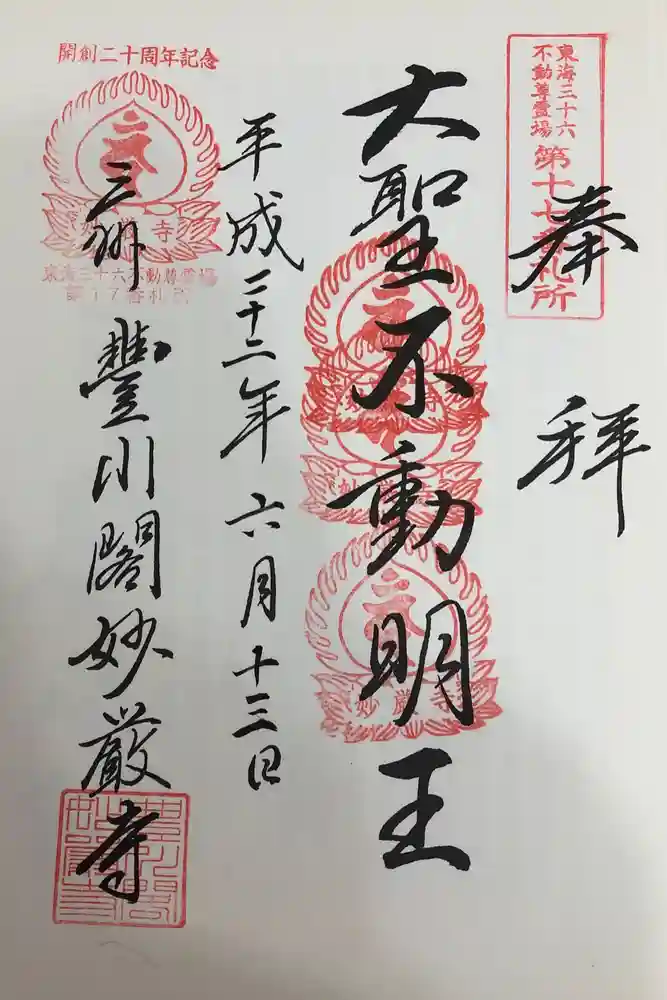 東海三十六
不動尊霊場
第十七番札所
奉拝
大聖不動明王
妙厳寺
平成二十二年六月十三日
開創二十周年記念
妙厳寺
東海三十六不動尊霊場
第17番札所
三州豊川閣妙厳寺